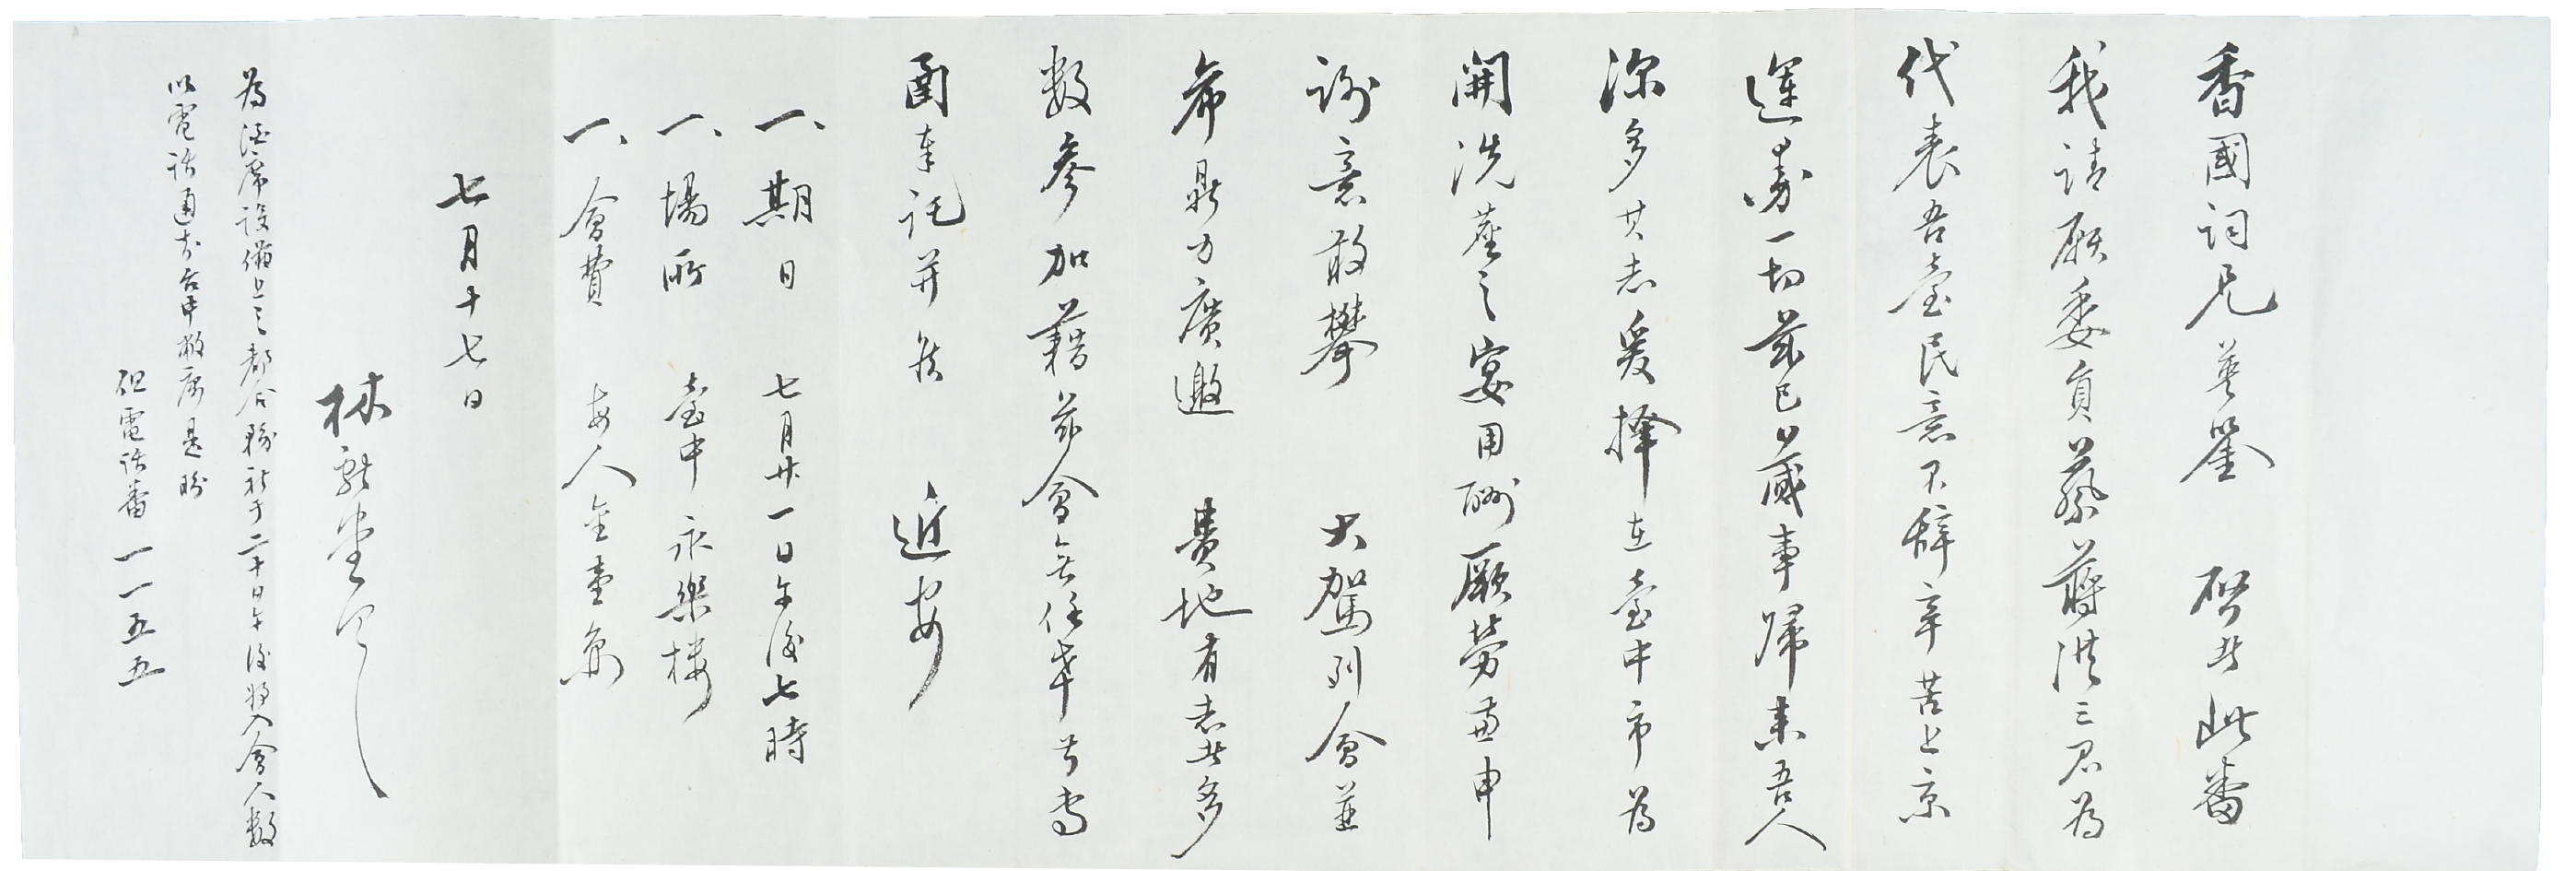 香國詞兄英鑒 啓者此番
我請願委員蔡蔣洪三君為
代表吾臺民意不辭辛苦上京
運動一切茲已蕆事歸來吾人
深多其志爰擇在臺中市為
開洗塵之宴用酬厥勞並申
謝意敢攀 大駕列會並
希鼎力廣邀 貴地有志者多
數參加藉茲會無任幸甚專
函奉託并候 近安
一、期日 七月廿一日午後七時
一、場所 臺中永樂樓
一、會費 每人金壹円
七月十七日
林獻堂
為酒席設備上之都合務祈于二十日午後將入會人數
以電話通知台中敝處是盼
但電話番一一五五